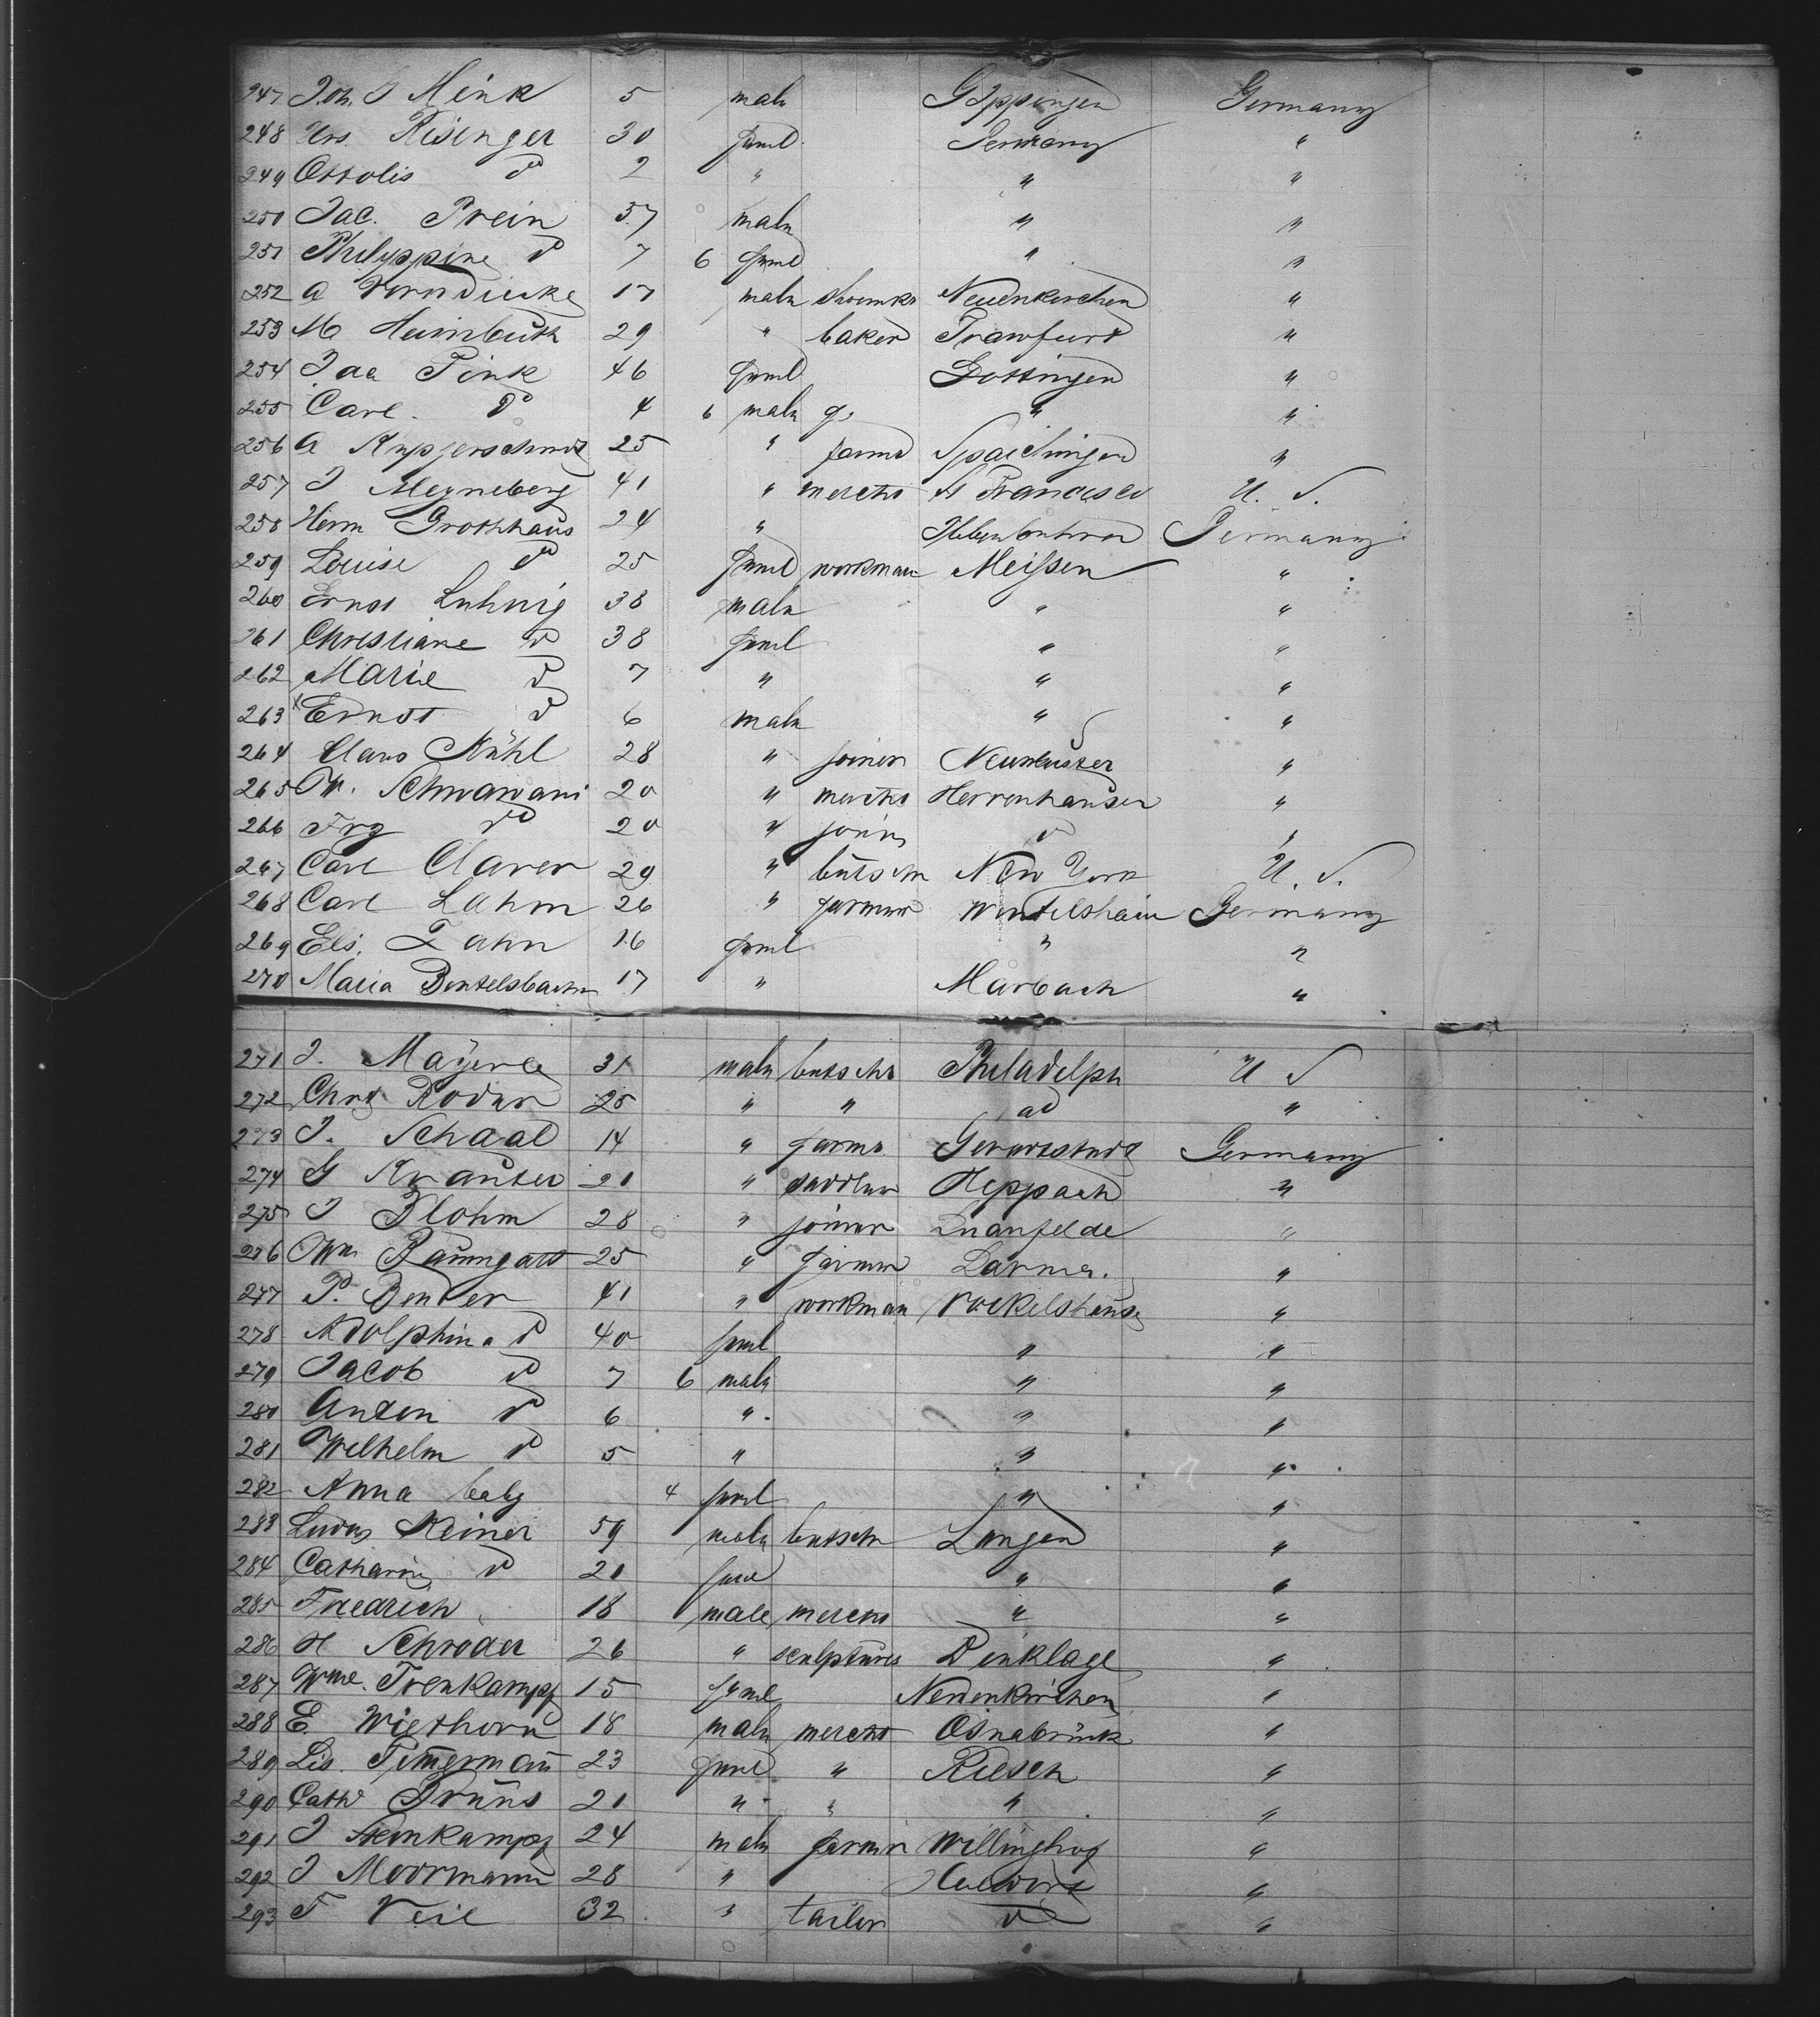 247 Joh. J Mink 5 male Göppingen Germany
248 Urs. Risenger 30 feml Germany "
249 Ottolis d 2 " " "
250 Jac. Prein 37 male " "
251 Philyppine d 7 6 feml " "
252 A 17 male shoemkr Neuenkirchen "
253 M Heimbuth 29 " baker "
254 Jaa Fink 46 feml Dottingen "
255 Carl d 4 6 male " "
256 A Kupferschmit 25 " farmr Spaichingen "
257 J Meyneberg 41 " merchs St Francisco U. S.
258 Herm Grothhaus 24 " Germany
259 Louise d 25 feml workman Meißen "
260 Ernst Luhwig 38 male " "
261 Christiane d 38 feml " "
262 Marie d 7 " " "
263 Ernst d 6 male " "
264 Claus Kühl 28 " joiner Neumuster "
265 Wm. 20 " merchs Herrenhausen "
266 Frz d 20 " joinr d "
267 Carl Claver 29 " butschr New York U. S.
268 Carl Lahm 26 " farmer Wintelshain Germany
269 Els. Zahn 16 feml " "
270 Maria Bentelsbachr 17 " Marbach "
271 J. Mayerle 31 male butschr Philadelph U S
272 Chrs Roder 25 " " ad "
273 J. Schaal 14 " farmr Germany
274 G Krauter 21 " saddler Heppach "
275 J Blohm 28 " joiner "
276 Wm Baumgart 25 " farmer Larmer. "
277 P. Bender 41 " workman "
278 Adolphina d 40 feml " "
279 Jacob d 7 6 male " "
280 Anton d 6 " " "
281 Wilhelm d 5 " " "
282 Anna baby 4 feml " "
283 Ludw Keiner 59 male butschr Langen "
284 Catharin d 21 feml " "
285 Friedrich 18 male merchs " "
286 H Schröder 26 " sculptures Dinklage "
287 Wme. Trenkampf 15 feml Neuenkirchen "
288 E. Wiethorn 18 male merchs Osnabrück "
289 Lis. Timerman 23 feml " Riesch "
290 Cathr Bruns 21 " " " "
291 J Stenkampf 24 male farmer Willinghof "
292 J Moormann 28 " "
293 F Veil 32 " tailer d "